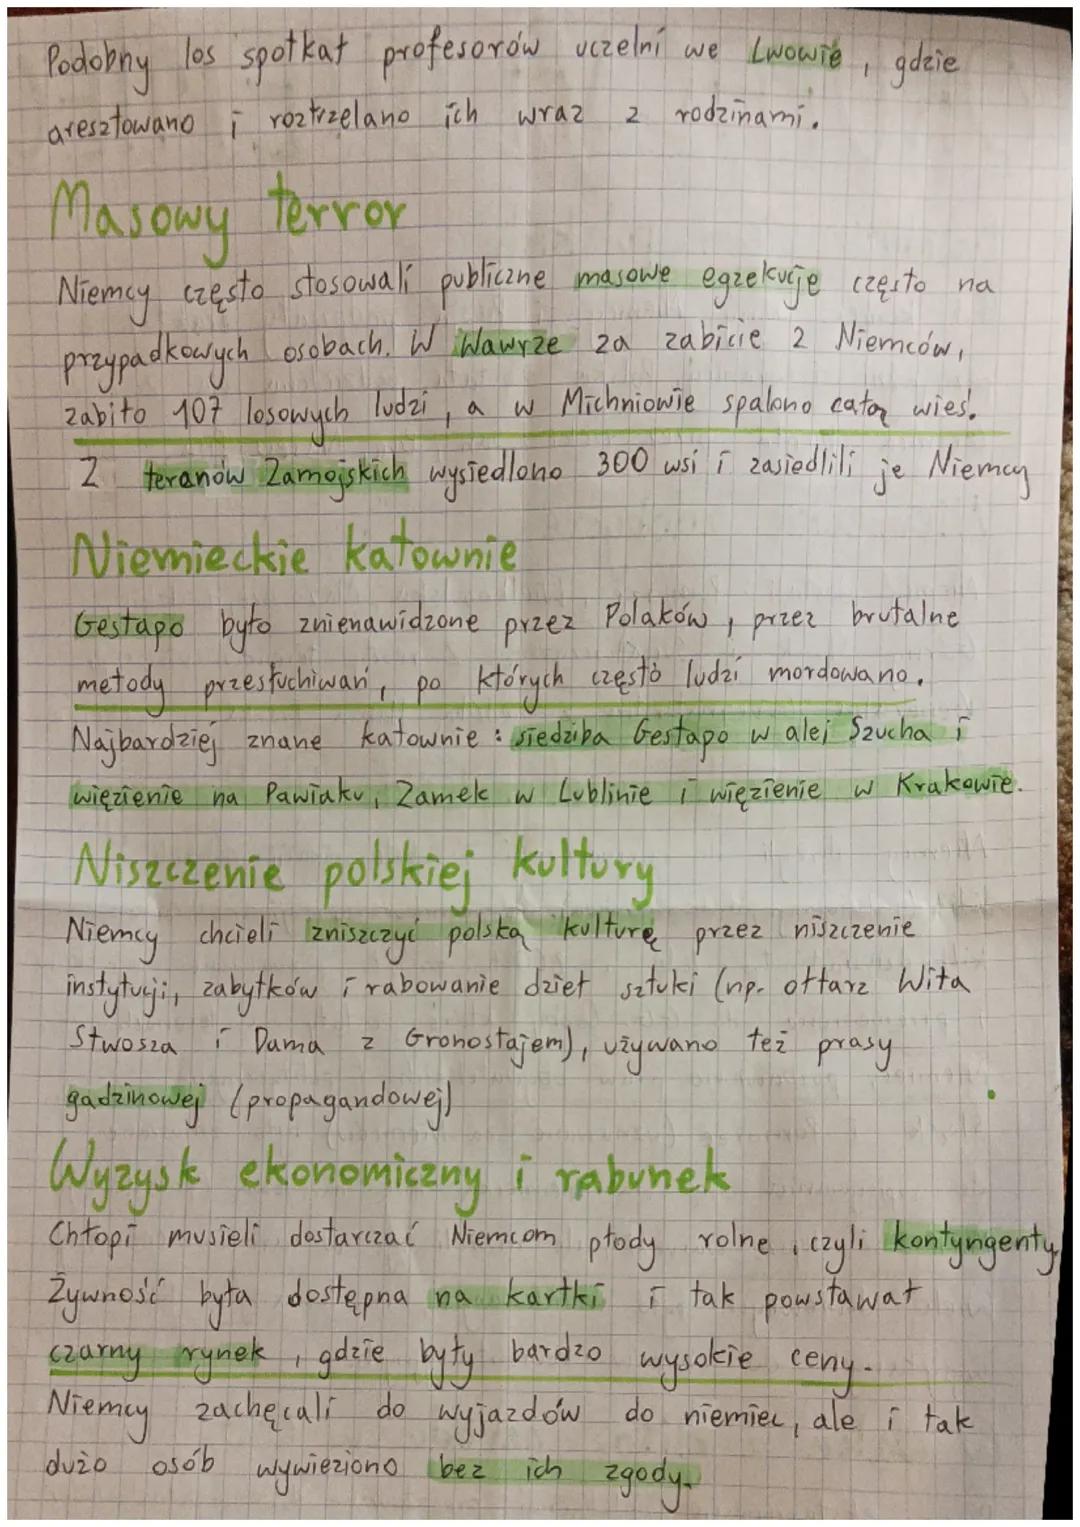 Podobny los spotkał profesorów uczelni we Lwowie, gdzie
aresztowano i roztrzelano ich wraz z rodzinami.
Masowy terror
Niemcy często stosowali publiczne masowe egzekucje często na
przypadkowych osobach. W Wawrze za zabicie 2 Niemców,
zabito 107 losowych ludzi, a w Michniowie spalono całą wieś.
Z teranów Zamojskich wysiedlono 300 wsi i zasiedlili je Niemcy
Niemieckie katownie
Gestapo było znienawidzone przez Polaków, przez brutalne
metody przesłuchiwań, po których często ludzi mordowano.
Najbardziej znane katownie: siedziba Gestapo w alei Szucha i
więzienie na Pawiaku, Zamek w Lublinie i więzienie w Krakowie.
Niszczenie polskiej kultury
Niemcy chcieli zniszczyć polską kulturę przez niszczenie
instytucji, zabytków i rabowanie dzieł sztuki (np. ołtarz Wita
Stwosza i Dama z Gronostajem), używano też prasy
gadzinowej (propagandowej)
Wyzysk ekonomiczny i rabunek
Chłopi musieli dostarczać Niemcom płody rolne, czyli kontyngenty
Żywność była dostępna na kartki i tak powstawał
czarny rynek, gdzie były bardzo wysokie ceny.
Niemcy zachęcali do wyjazdów do niemiec, ale i tak
dużo osób wywieziono bez ich zgody.